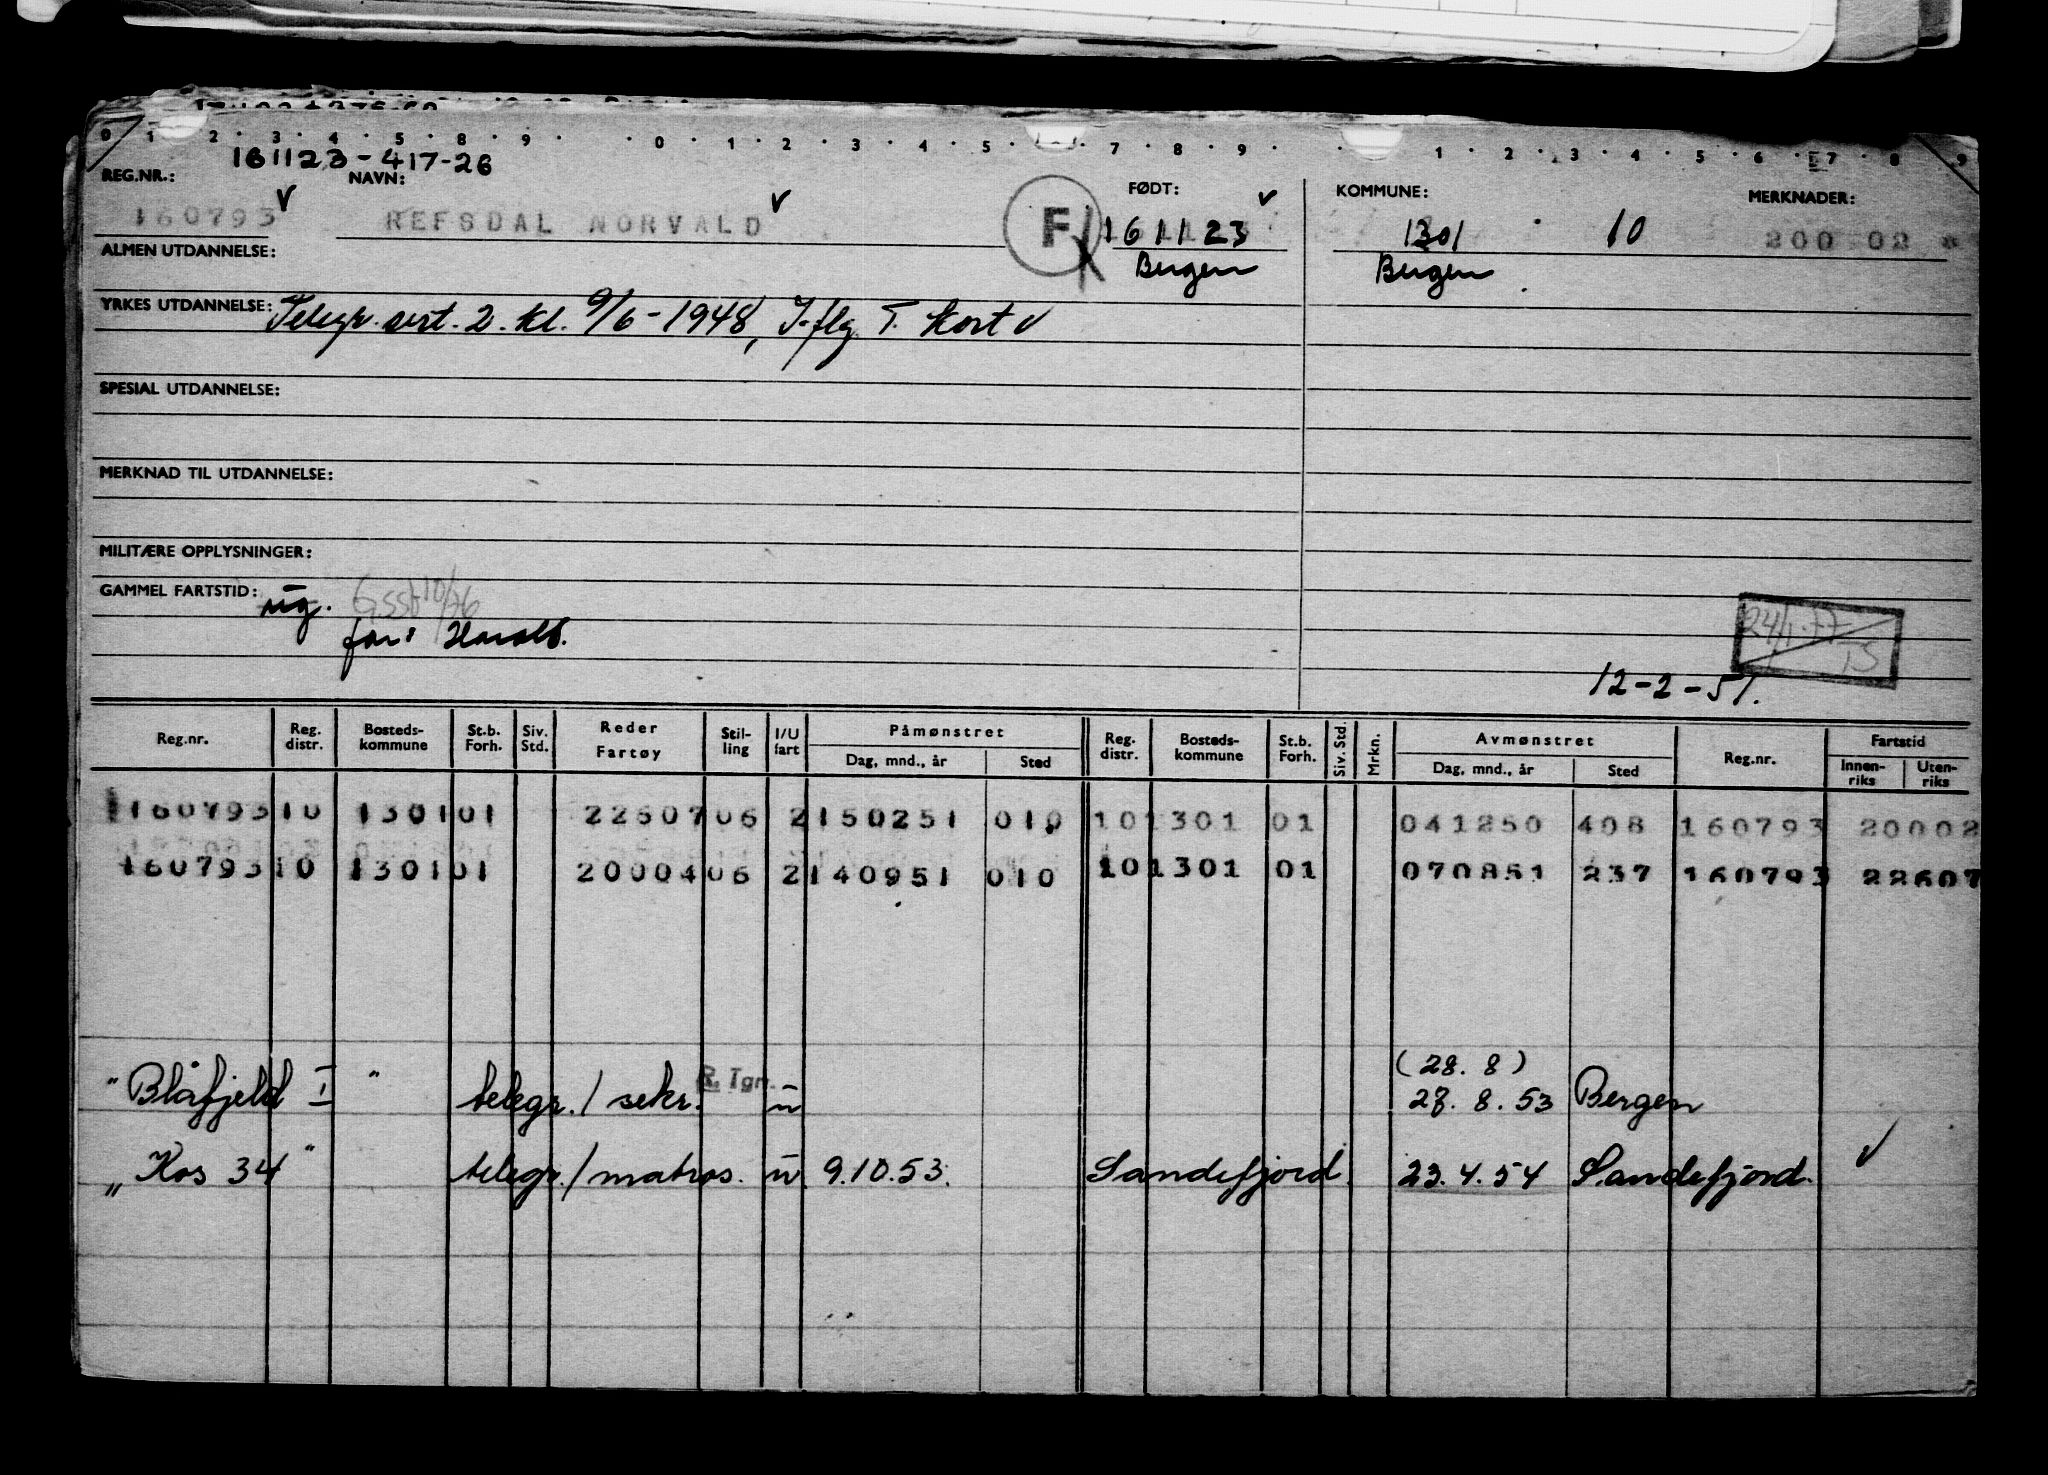 0 1 2 3 4 5 8 9 0 1 2 3 4 5 7 8 9 1 2 3 4 5 6 7 8 9
161123-417-26
REG.NR.: NAVN: FØDT: KOMMUNE: MERKNADER:
160793 REFSDAL NORVALD F 161123 1301 10 200 02
ALMEN UTDANNELSE: Bergen Bergen
YRKES UTDANNELSE: Telegr. sert. 2. kl. 9/6-1948, I.flg. T. kort
SPESIAL UTDANNELSE:
MERKNAD TIL UTDANNELSE:
MILITÆRE OPPLYSNINGER:
GAMMEL FARTSTID: 10/76
24/1-77
TS
far: Harald.
12-2-51.
Reg.nr. Reg. distr. Bosteds-kommune St.b. Forh. Siv. Std. Reder Fartøy Stil-ling I/U fart Påmønstret Dag, mnd., år Sted Reg. distr. Bosteds-kommune St.b. Forh. Siv. Std. Mrkn. Avmønstret Dag, mnd., år Sted Reg.nr. Fartstid Innen-riks Uten-riks
160793 10 1301 01 22607 06 2 150251 010 10 1301 01 041250 408 160793 20002
160793 10 1301 01 20004 06 2 140951 010 10 1301 01 070851 237 160793 22607
(28. 8)
"Blåfjeld I" telegr./sekr. R. Tgn. u 28. 8. 53 Bergen
"Kos 34" telegr./matros. u. 9.10.53. Sandefjord. 23.4.54 Sandefjord.